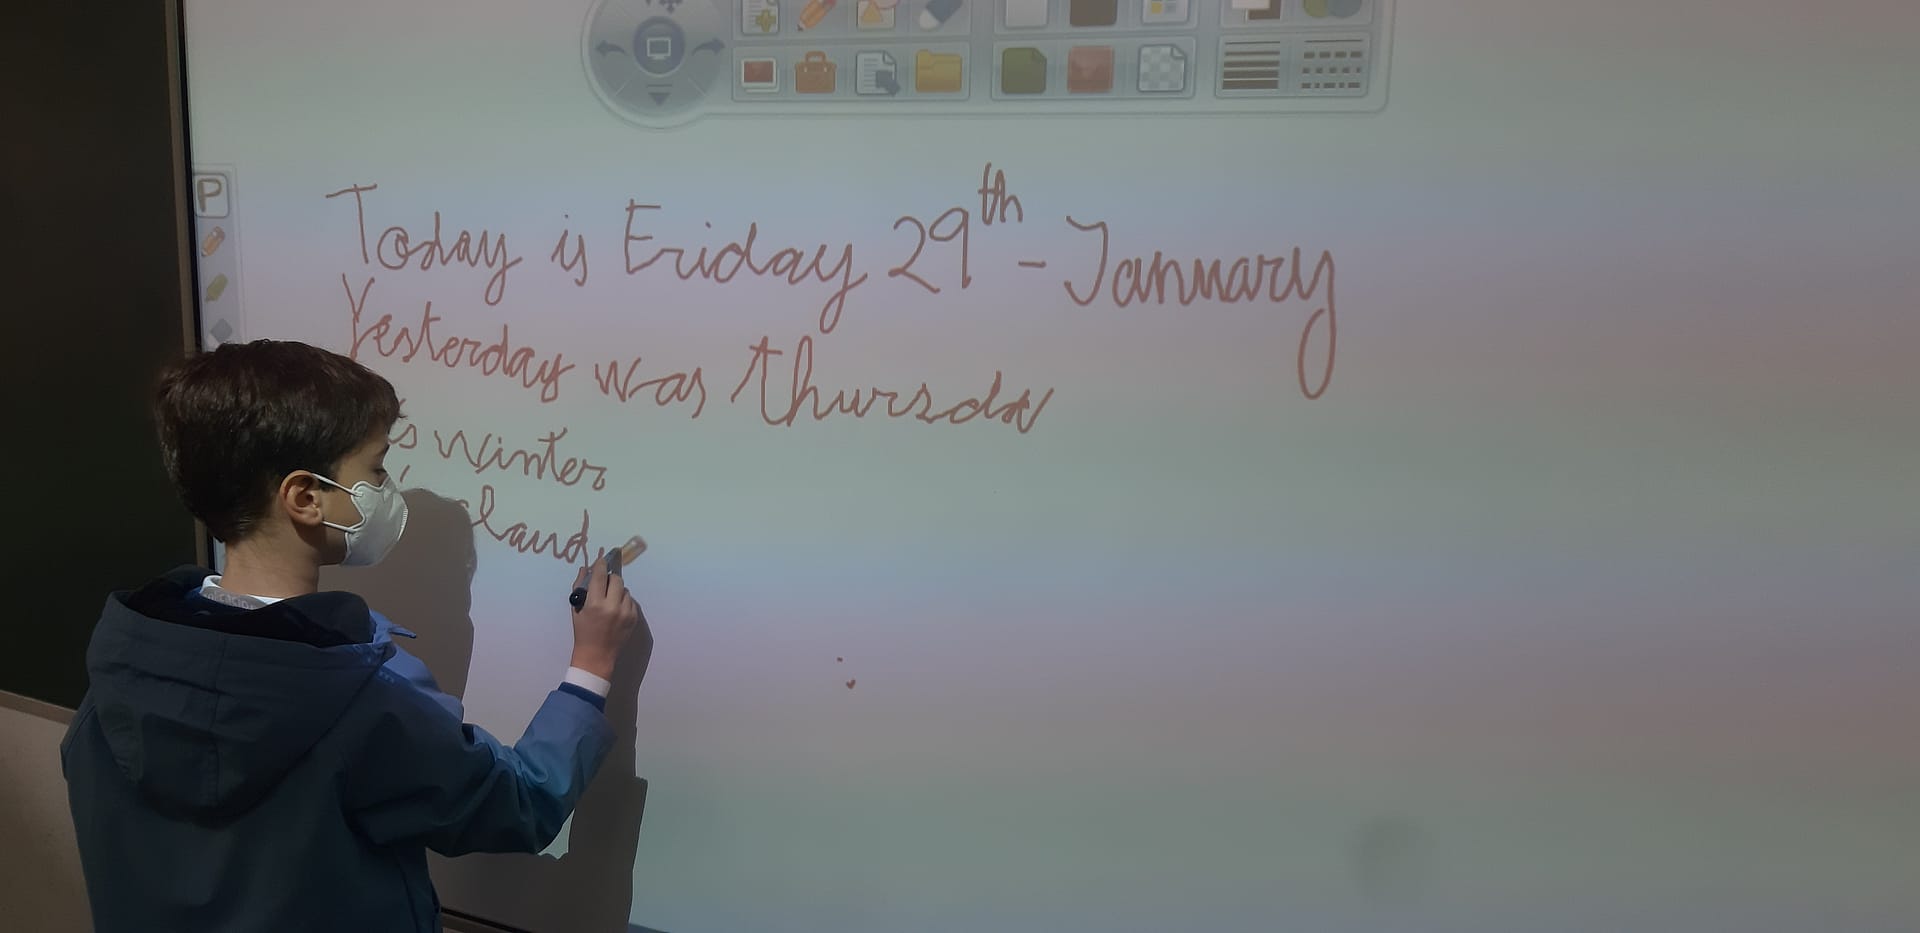 P
Today is Friday 29th - January
Yesterday was thursday
winter